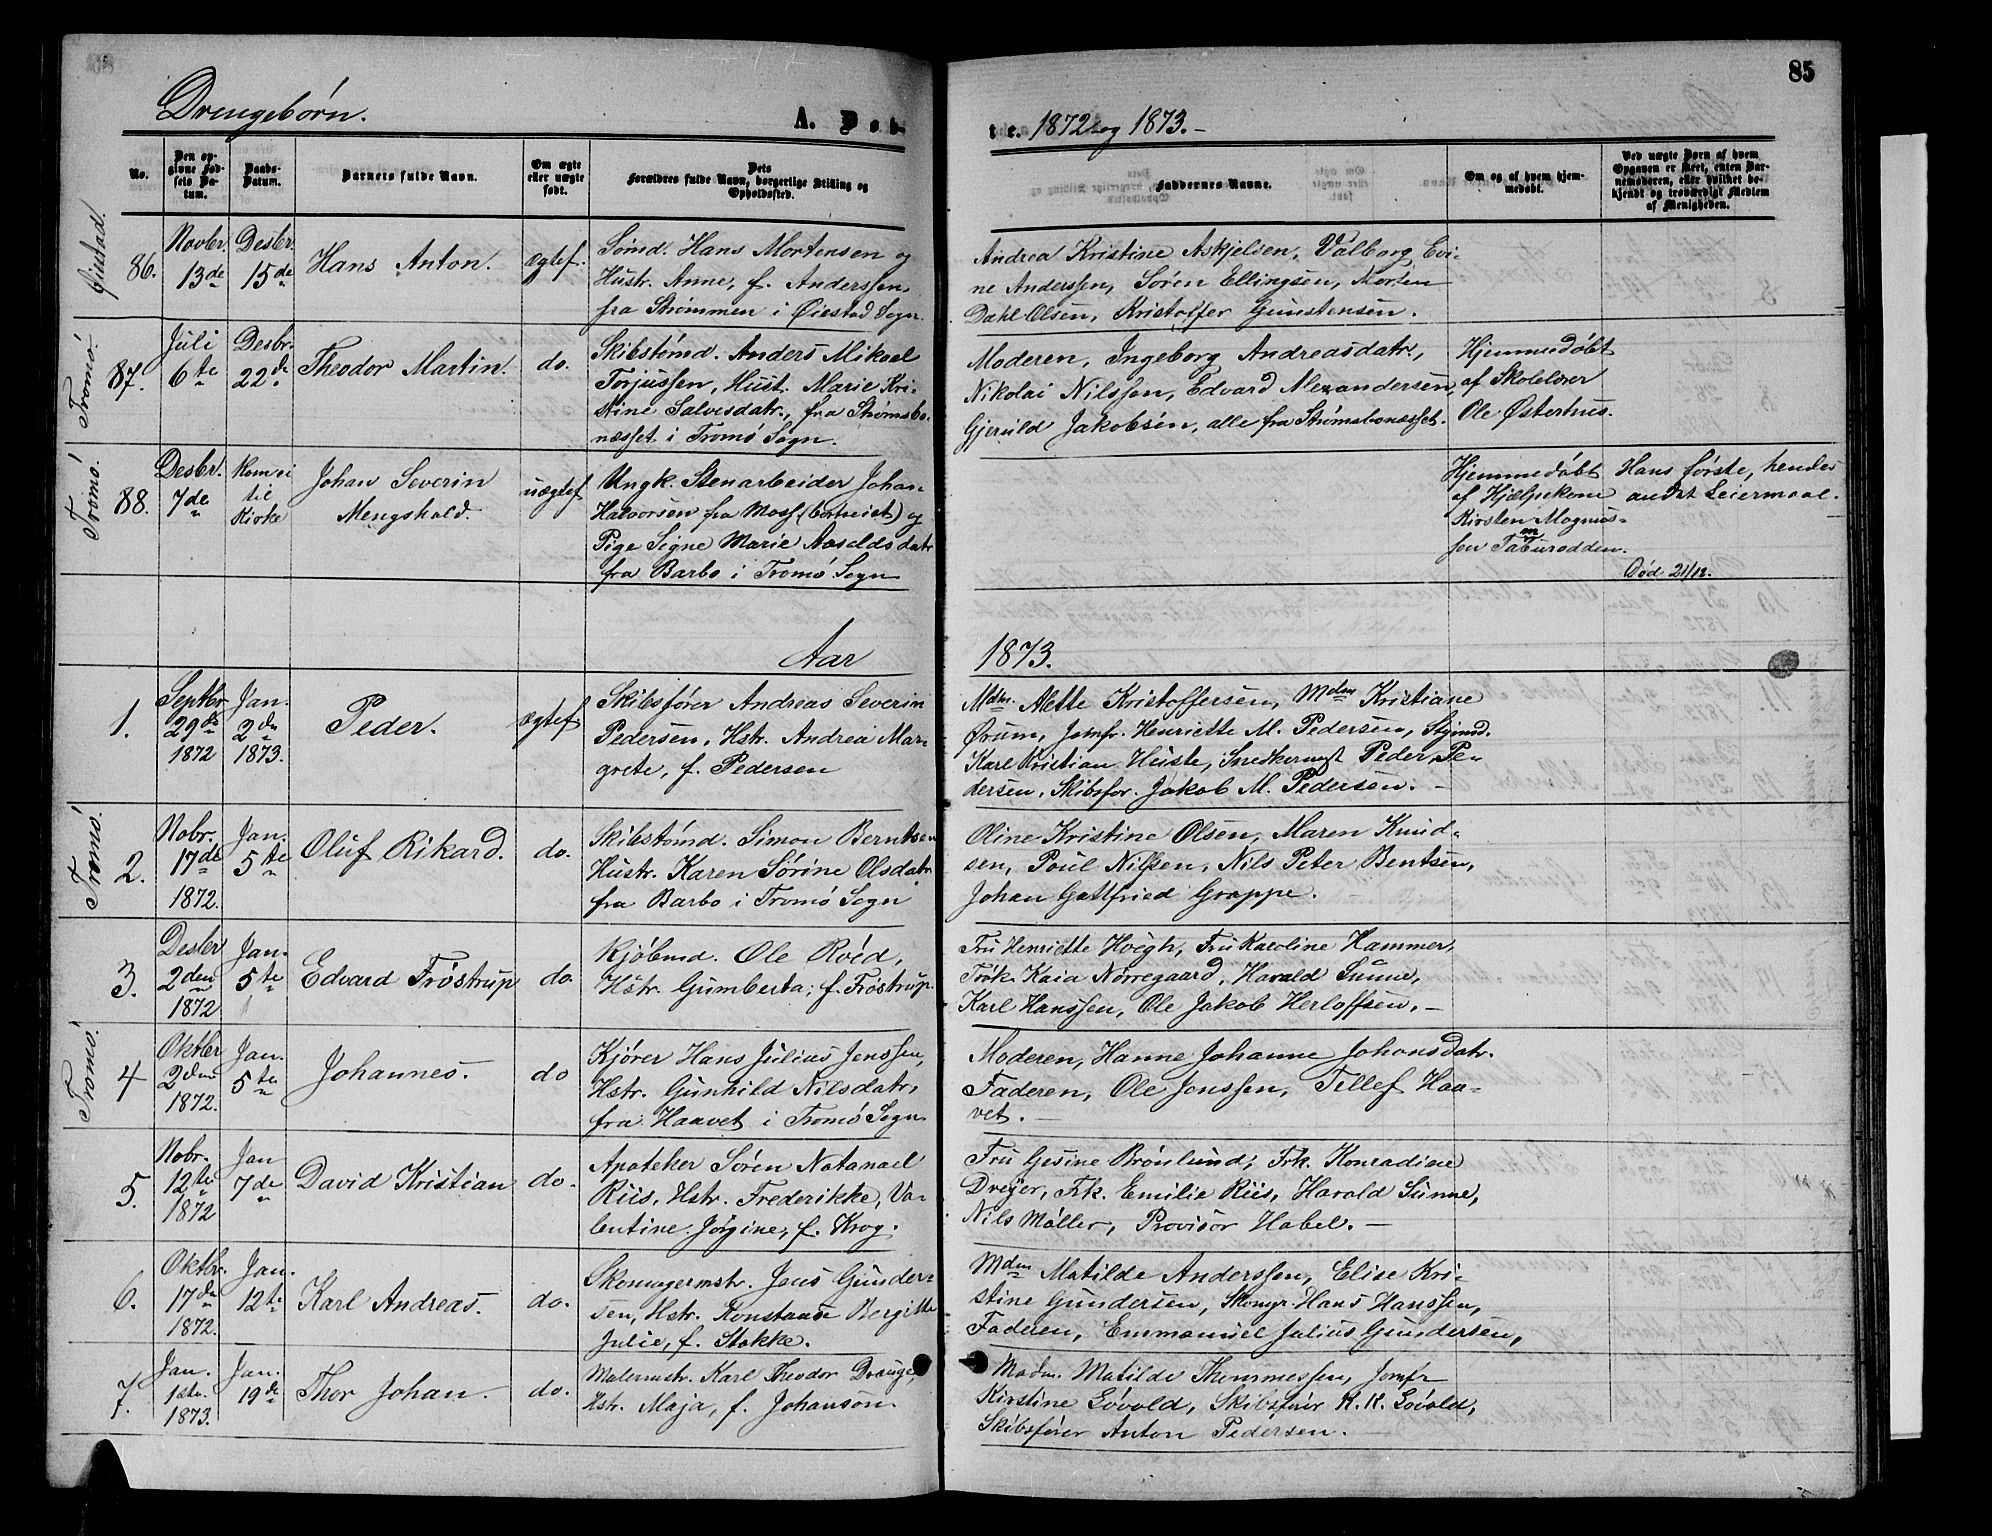 85
Drengebørn.
A. Døb-
te. 1872 og 1873.-
No.
Den op-
givne Fød-
sels Da-
tum.
Daabs-
Datum.
Barnets fulde Navn.
Om ægte
eller uægte
født.
Dets
Forældres fulde Navn, borgerlige Stilling og
Opholdssted.
Faddernes Navne.
Om og af hvem hjem-
medøbt.
Ved uægte Børn af hvem
Opgaven er skeet, enten Bar-
nemoderen, eller hvilket be-
kjendt og troværdigt Medlem
af Menigheden.
Øiestad.
86.
Novbr.
13de
Desbr.
15de
Hans Anton.
ægtef.
Sømd. Hans Mortensen og
Hustr. Anne, f. Anderssen,
fra Strømmen i Øiestad Sogn.
Andrea Kristine Askjelsen, Valborg Evi-
ne Anderssen, Søren Ellingsen, Morten
Dahl Olsen, Kristoffer Gunstensen.
Tromø.
87.
Juli
6te
Desbr.
22de
Theodor Martin.
do.
Skibstømd. Anders Mikael
Torjussen, Hust. Marie Kri-
stine Salvesdatr., fra Strømsbo-
næsset i Tromø Sogn.
Moderen, Ingeborg Andreasdatr.,
Nikolai Nilssen, Edvard Alexandersen,
Gjeruld Jakobsen, alle fra Strømsbonæsset.
Hjemmedøbt
af Skolelærer
Ole Østerhus.
Tromø.
88.
Desbr.
7de
Kom ei
til
Kirke
Johan Severin
Mengshald.
uægtef
Ungk. Stenarbeider Johan
Halvorsen fra Moss (bortreist) og
Pige Signe Marie Aasoldsdatr
fra Barbo i Tromø Sogn
Hjemmedøbt
af Hjælpekone
Kirsten Magnus-
sen Taturodden.
Hans første, hendes
andet Leiermaal.
Død 21/12.
Aar
1873.
1.
Septbr
29de
1872
Jan.
2den
1873.
Peder.
ægtef
Skibsfører Andreas Severin
Pedersen, Hstr. Andrea Mar-
grete, f. Pedersen
Mdm. Alette Kristoffersen, Mdm Kristiane
Ørum, Jomfr. Henriette M. Pedersen, Styrmd.
Karl Kristian Huste, Snedkermst Peder Pe-
dersen, Skibsfør. Jakob M. Pedersen. -
Tromø.
2.
Nobr.
17de
1872.
Jan.
5te
Oluf Rikard.
do.
Skibstømd. Simon Berntsen
Hustr. Karen Sørine Olsdatr.
fra Barbo i Tromø Sogn
Oline Kristine Olsen, Maren Knud-
sen, Poul Nilsen, Nils Peter Bentsen,
Johan Gottfried Grappe.
3.
Desbr
2den
1872
Jan.
5te
Edvard Frøstrup
do.
Kjøbmd. Ole Røed,
Hstr. Gumberta, f. Frøstrup.
Fru Henriette Høegh, Fru Karoline Hammer,
Frøk. Kaia Nørregaard, Harald Sunne,
Karl Hanssen, Ole Jakob Herloffsen, -
Tromø.
4
Oktbr
2den
1872.
Jan.
5te
Johannes.
do
Kjører Hans Julius Jenssen,
Hstr. Gunhild Nilsdatr,
fra Haavet i Tromø Sogn.
Moderen, Hanne Johanne Johansdatr.
Faderen, Ole Jenssen, Tellef Haa-
vet. -
5.
Nobr.
12te
1872
Jan
7de
David Kristian
do.
Apoteker Søren Natanael
Riis, Hstr. Frederikke, Va-
lentine Jørgine, f. Krog.
Fru Gesine Brønlund, Frk. Konradine
Dreyer, Frk. Emilie Riis, Harald Sunne,
Nils Møller, Provisor Habel. -
6.
Oktbr.
17de
1872.
Jan.
12te
Karl Andreas.
do.
Skomagermstr. Jens Gunder-
sen, Hstr. Konstanse Bergitte
Julie, f. Stokke.
Mdm Matilde Anderssen, Elise Kri-
stine Gundersen, Skomgr. Hans Hanssen,
Faderen, Emmanuel Julius Gundersen,
7.
Jan.
1ste
1873.
Jan.
19de
Thor Johan.
do.
Malermstr. Karl Theodor Drange,
Hstr. Maja, f. Johanson.
Madm. Matilde Thommessen, Jomfr
Kirstine Løvold, Skibsfører K. K. Løvold,
Skibsfører Anton Pedersen. -